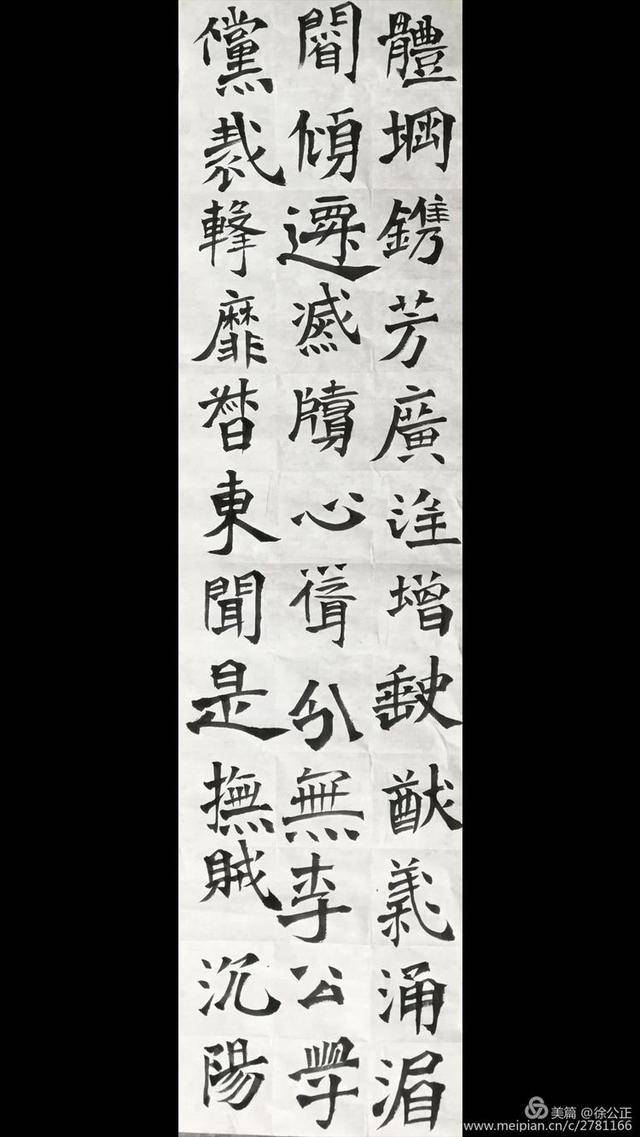 體堈鐫芳廣增猷義涌湄
閻傾遷滅牘心分無李公
儻裁靡東聞是撫賊沉陽
美篇 @徐公正
www.meipian.cn/c/2781166